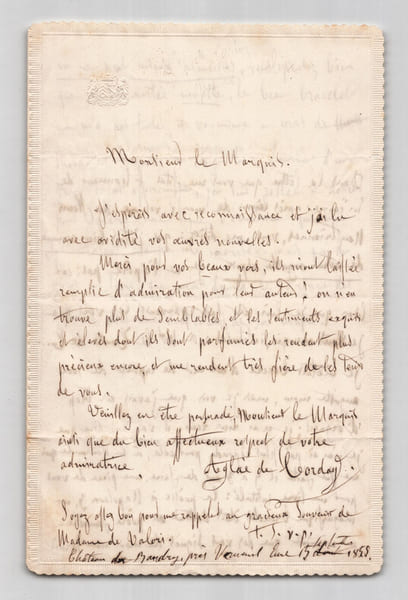 Monsieur le Marquis.
J'espérais avec reconnaissance et j'ai lu
avec avidité vos œuvres nouvelles.
Merci pour vos beaux vers, ils m'ont laissée
remplie d'admiration pour leur auteur! on n'en
trouve plus de semblables et les sentiments exquis
et élevés dont ils sont parfumés les rendent plus
précieux encore, et me rendent très fière de les tenir
de vous.
Veuillez en être persuadé, Monsieur le Marquis
ainsi que du bien affectueux respect de votre
admiratrice, Aglaé de Corday.
Soyez assez bon pour me rappeler au gracieux souvenir de
Madame de Valori.
Château près Verneuil Eure 15 1858